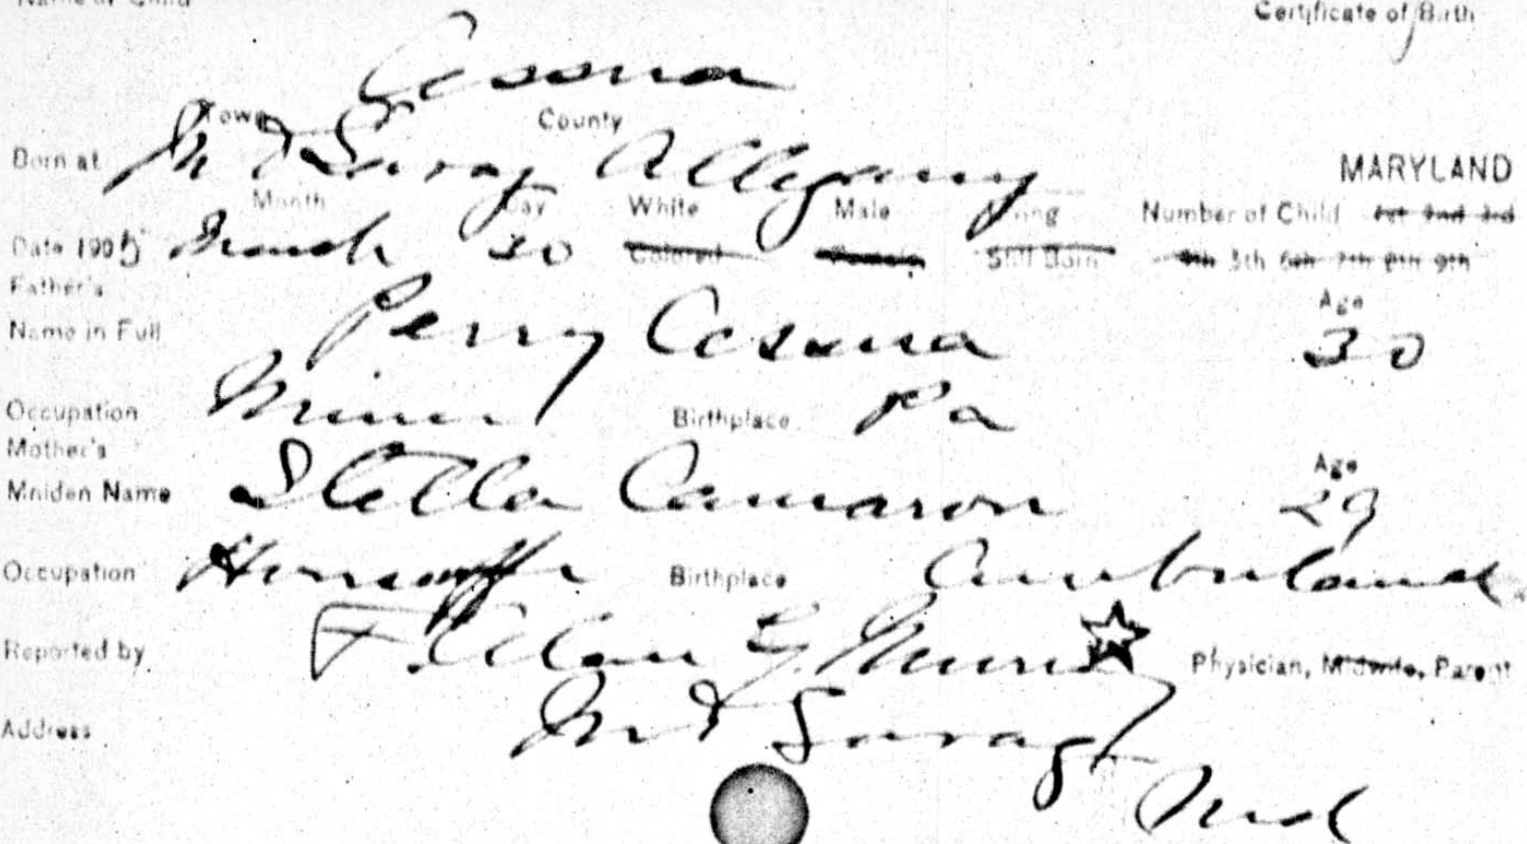 Name of Child Certificate of Birth
Cessna
Town County
Born at Mt Savage Allegany MARYLAND
Month Day White Male Living Number of Child 1st 2nd 3rd
Date 1905 March 30 Colored Female Still Born 4th 5th 6th 7th 8th 9th
Father's Age
Name in Full Perry Cessna 30
Occupation Miner Birthplace Pa
Mother's Age
Maiden Name Stella Camaron 29
Occupation Housewife Birthplace Cumberland
Reported by F. Alan G. Murray Physician, Midwife, Parent
Address Mt Savage
Md